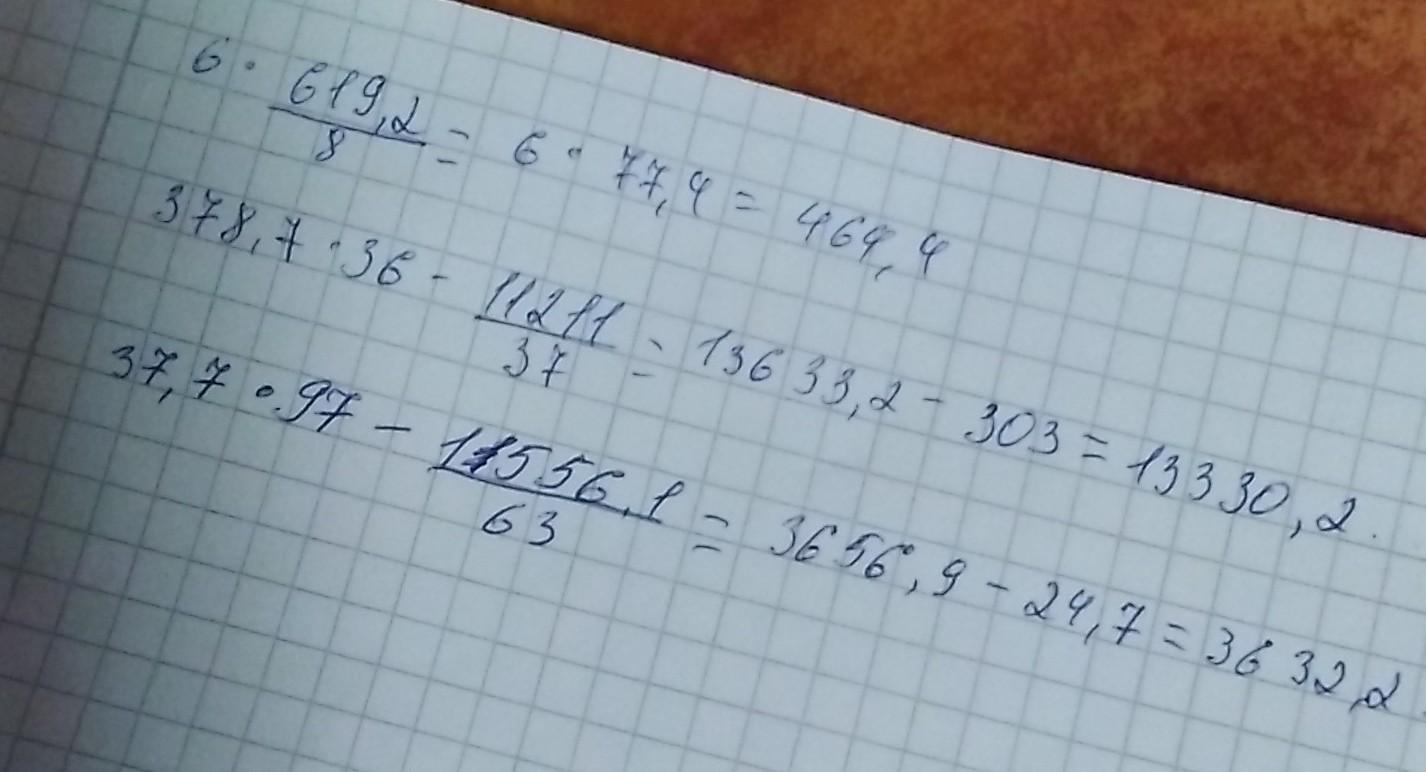 6 · 619,2/8 = 6 · 77,4 = 464,4
378,7 · 36 - 11211/37 = 13633,2 - 303 = 13330,2.
37,7 · 97 - 1556,1/63 = 3656,9 - 24,7 = 3632,2.